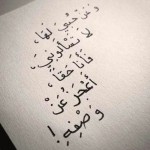 وَعَنْ حُبِّي لَهَا،
لَا تَسْأَلُونِي
فَأَنَا حَقًّا،
أَعْجَزُ عَنْ
وَصْفِهِ!